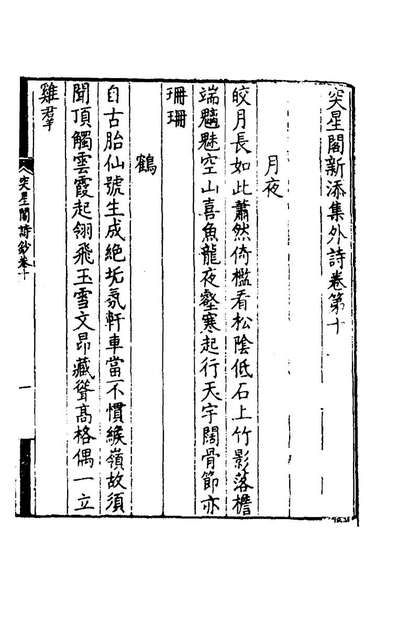 突星閣新添集外詩卷第十
月夜
皎月長如此蕭然倚檻看松陰低石上竹影落檐
端魑魅空山喜魚龍夜壑寒起行天宇闊骨節亦
珊珊
鶴
自古胎仙號生成絶垢氛軒車當不慣緱嶺故須
聞頂觸雲霞起翎飛玉雪文昂藏聳高格偶一立
雞羣
突星閣詩鈔卷十
一